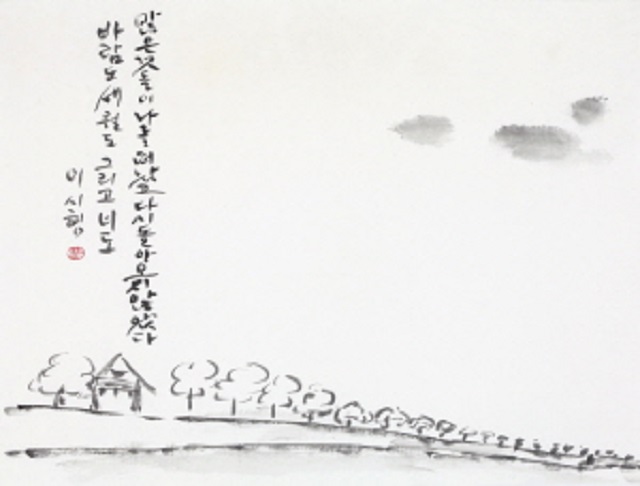 많은 것들이 나를 떠났고 다시 돌아오지 않았다
바람도 세월도 그리고 너도
이시형